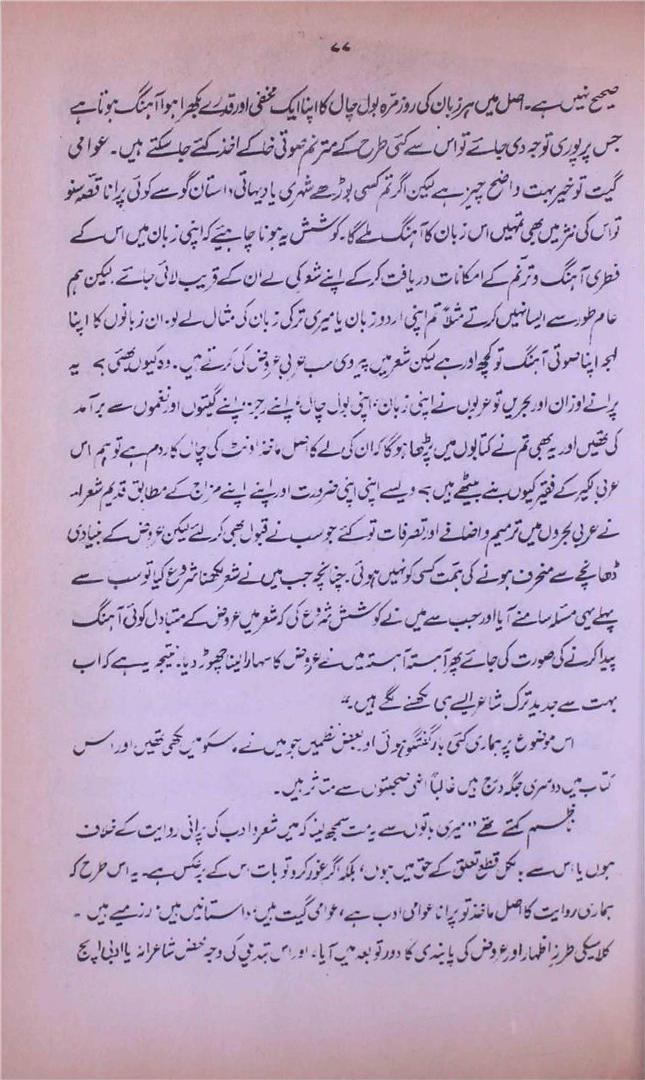 ۷۷
صحیح نہیں ہے۔ اصل میں ہر زبان کی روزمرّہ بول چال کا اپنا ایک مخفی اور قدرے بکھرا ہوا آہنگ ہوتا ہے
جس پر پوری توجہ دی جائے تو اس سے کئی طرح کے مترنم صوتی خاکے اخذ کئے جا سکتے ہیں۔ عوامی
گیت تو خیر بہت واضح چیز ہے لیکن اگر تم کسی بوڑھے شہری یا دیہاتی داستان گو سے کوئی پرانا قصّہ سنو
تو اس کی نثر میں بھی تمہیں اس زبان کا آہنگ ملے گا۔ کوشش یہ ہونا چاہیئے کہ اپنی زبان میں اس کے
فطری آہنگ و ترنّم کے امکانات دریافت کرکے اپنے شعر کی لے ان کے قریب لائی جائے، لیکن ہم
عام طور سے ایسا نہیں کرتے مثلاً تم اپنی اردو زبان یا میری ترکی زبان کی مثال لے لو۔ ان زبانوں کا اپنا
لہجہ اپنا صوتی آہنگ تو کچھ اور ہے لیکن شعر میں پیروی سب عربی عروض کی کرتے ہیں۔ وہ کیوں بھئی؟ یہ
پرانے اوزان اور بحریں تو عربوں نے اپنی زبان، اپنی بول چال، اپنے رجز، اپنے گیتوں اور نغموں سے برآمد
کی تھیں اور یہ بھی تم نے کتابوں میں پڑھا ہوگا کہ ان کی لے کا اصل ماخذ اونٹ کی چال کا ردم ہے تو ہم اس
عربی لکیر کے فقیر کیوں بنے بیٹھے ہیں؟ ویسے اپنی اپنی ضرورت اور اپنے اپنے مزاج کے مطابق قدیم شعراء
نے عربی بحروں میں ترمیم و اضافے اور تصرفات تو کئے جو سب نے قبول بھی کر لئے لیکن عروض کے بنیادی
ڈھانچے سے منحرف ہونے کی ہمّت کسی کو نہیں ہوئی۔ چنانچہ جب میں نے شعر لکھنا شروع کیا تو سب سے
پہلے یہی مسئلہ سامنے آیا اور جب سے میں نے کوشش شروع کی کہ شعر میں عروض کے متبادل کوئی آہنگ
پیدا کرنے کی صورت کی جائے پھر آہستہ آہستہ میں نے عروض کا سہارا لینا چھوڑ دیا۔ نتیجہ یہ ہے کہ اب
بہت سے جدید ترک شاعر ایسے ہی لکھنے لگے ہیں۔"
اس موضوع پر ہماری کئی بار گفتگو ہوئی اور بعض نظمیں جو میں نے ماسکو میں لکھی تھیں اور اس
کتاب میں دوسری جگہ درج ہیں غالباً انہی صحبتوں سے متاثر ہیں۔
ناظم کہتے تھے "میری باتوں سے یہ مت سمجھ لینا کہ میں شعر و ادب کی پرانی روایت کے خلاف
ہوں یا اس سے بالکل قطع تعلق کے حق میں ہوں، بلکہ اگر غور کرو تو بات اس کے برعکس ہے۔ یہ اس طرح کہ
ہماری روایت کا اصل ماخذ تو پرانا عوامی ادب ہے، عوامی گیت ہیں، داستانیں ہیں، رزمیے ہیں۔
کلاسیکی طرزِ اظہار اور عروض کی پابندی کا دور تو بعد میں آیا، اور اس تبدیلی کی وجہ محض شاعرانہ یا ادبی اپج